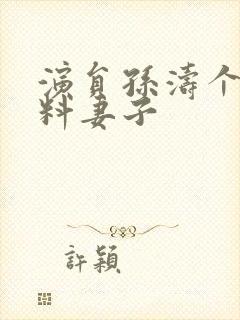 演員孫濤个
料妻子
許穎